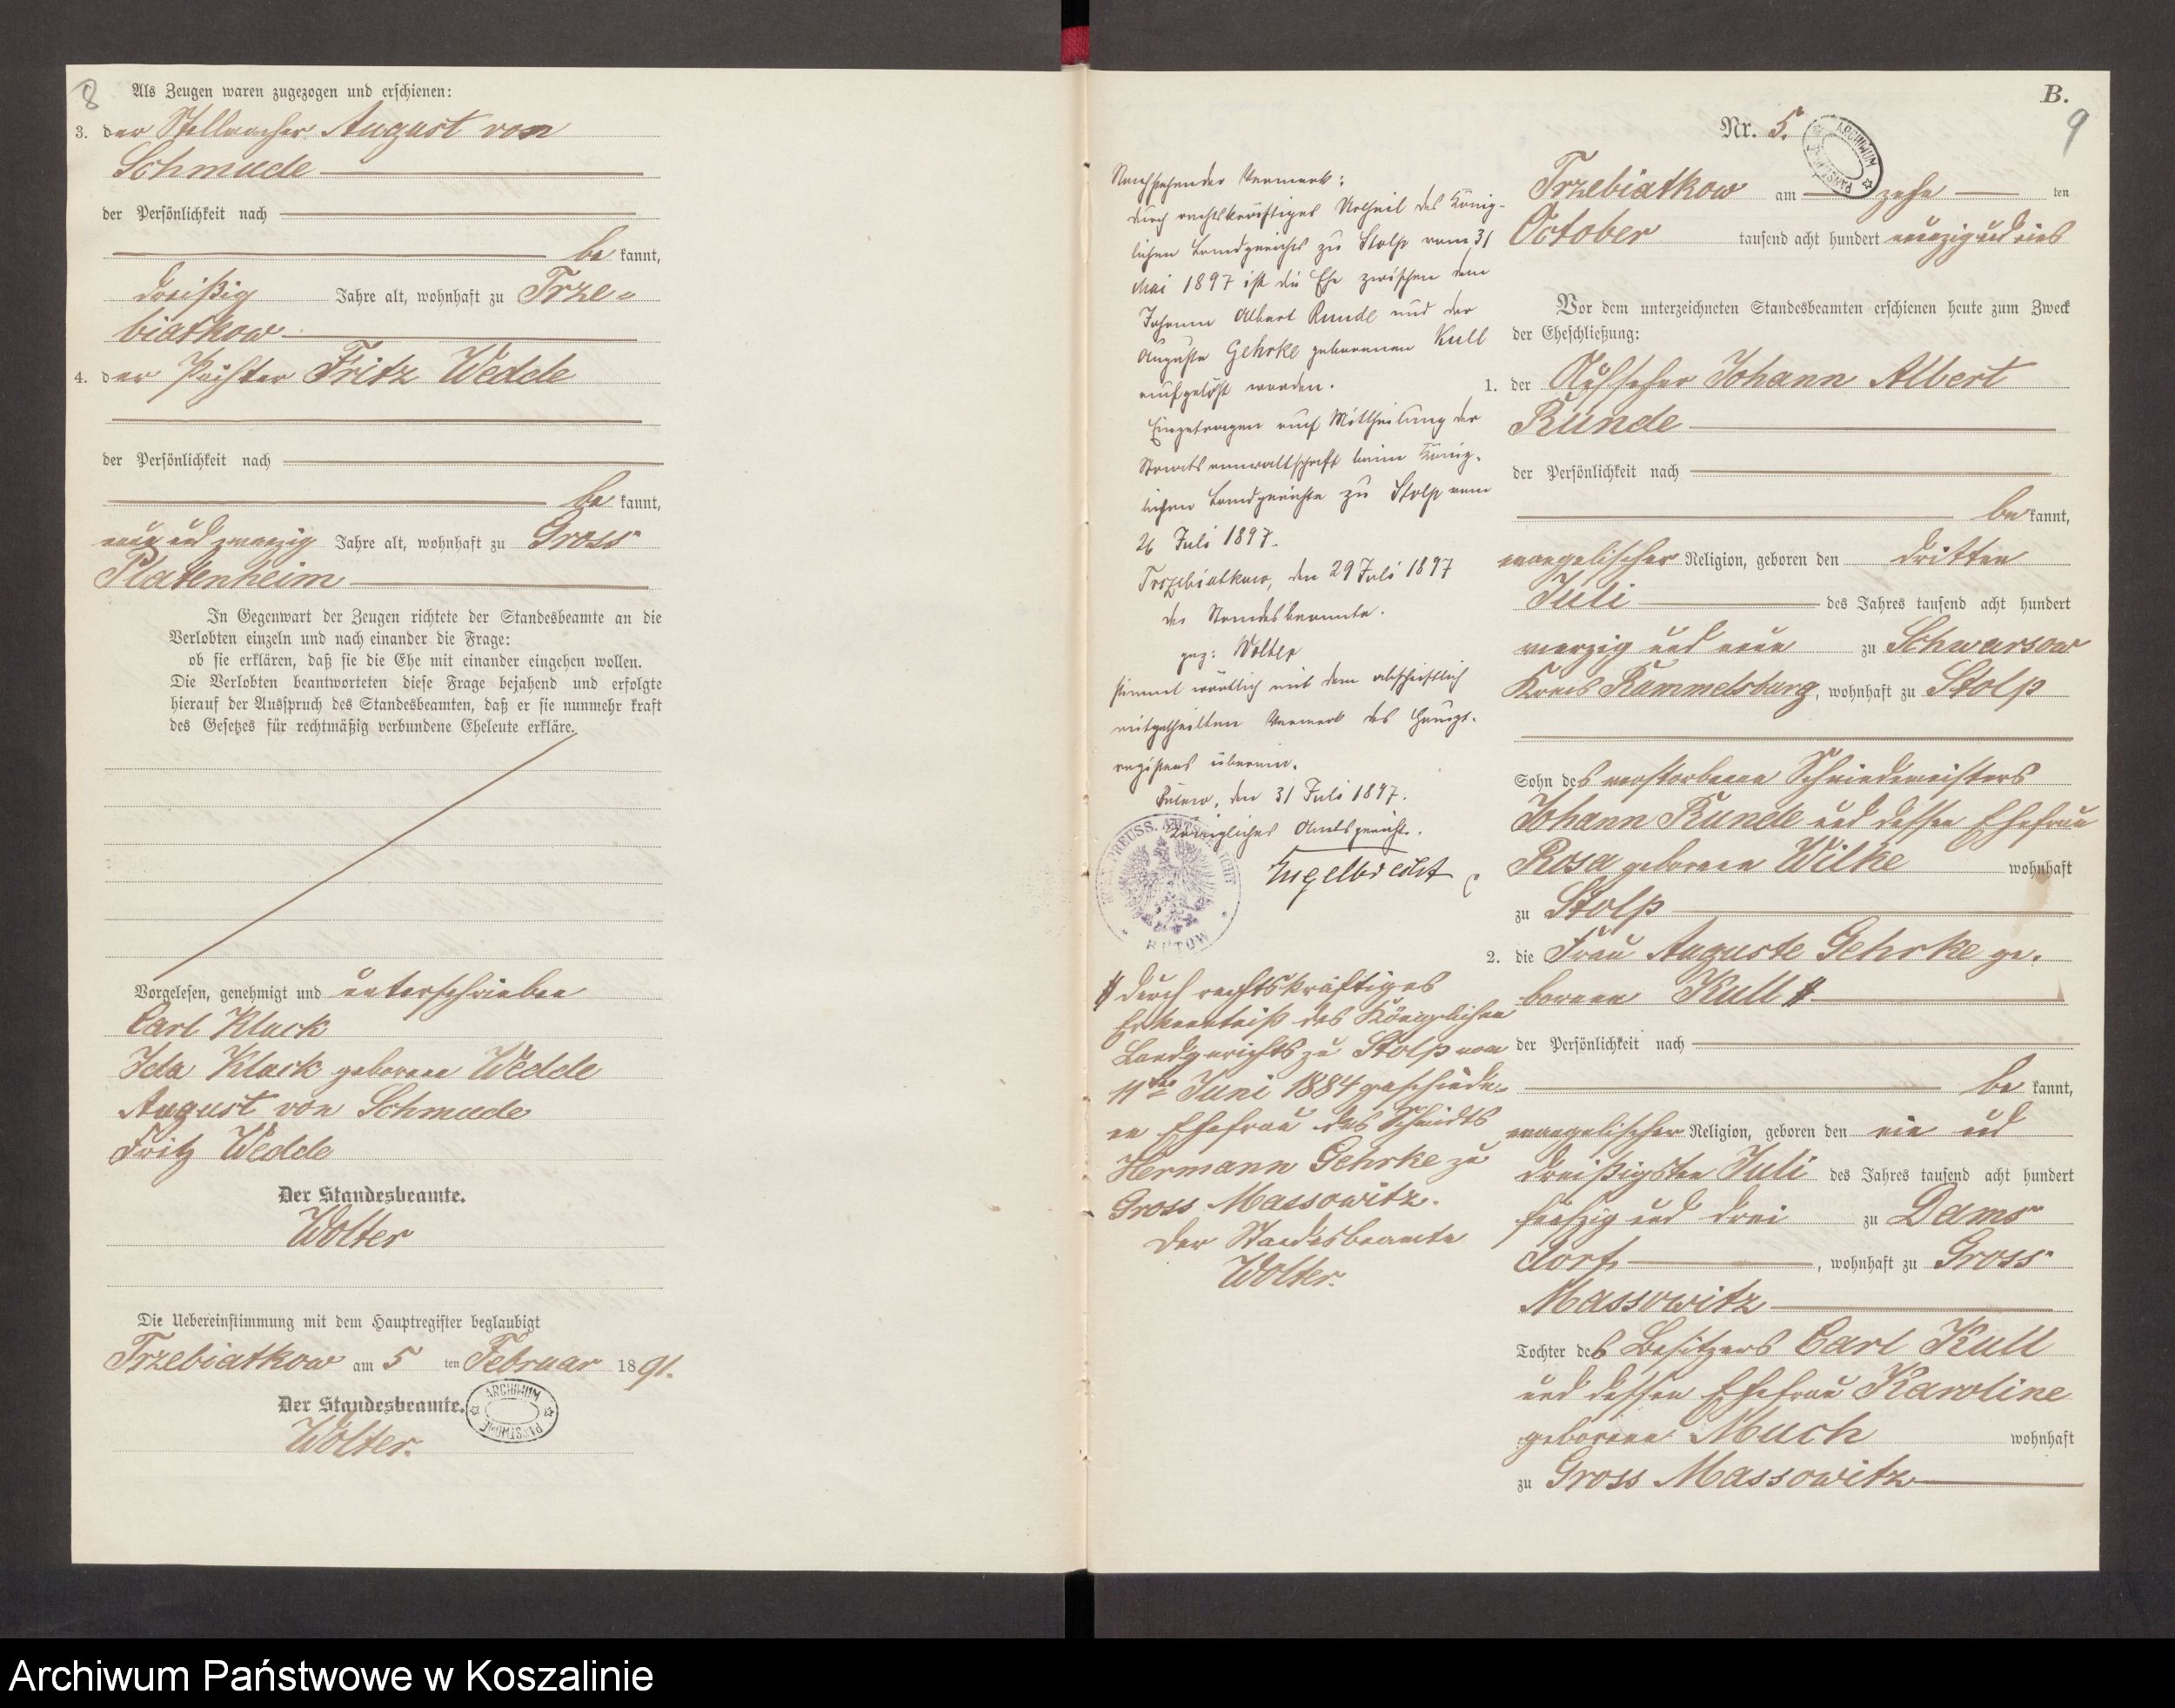 8
Als Zeugen waren zugezogen und erschienen:
3. der Stellmacher August von
Schmude
der Persönlichkeit nach
be kannt,
dreißig Jahre alt, wohnhaft zu Trze=
biatkow
4. der Pächter Fritz Wedde
der Persönlichkeit nach
be kannt,
neun und zwanzig Jahre alt, wohnhaft zu Gross
Platenheim
In Gegenwart der Zeugen richtete der Standesbeamte an die
Verlobten einzeln und nach einander die Frage:
ob sie erklären, daß sie die Ehe mit einander eingehen wollen.
Die Verlobten beantworteten diese Frage bejahend und erfolgte
hierauf der Ausspruch des Standesbeamten, daß er sie nunmehr kraft
des Gesetzes für rechtmäßig verbundene Eheleute erkläre.
Vorgelesen, genehmigt und unterschrieben
Carl Kluck
Ida Kluck geborene Wedde
August von Schmude
Fritz Wedde
Der Standesbeamte.
Wolter
Die Uebereinstimmung mit dem Hauptregister beglaubigt
Trzebiatkow am 5 ten Februar 1891.
Der Standesbeamte.
Wolter.
ARCHIWUM PAŃSTWOWE
B.
9
Nr. 5.
ARCHIWUM PAŃSTWOWE
Nachstehender Vermerk:
durch rechtskräftiges Urtheil des König-
lichen Landgerichts zu Stolp vom 31
Mai 1897 ist die Ehe zwischen dem
Johann Albert Runde und der
Auguste Gehrke geborenen Kull
aufgelöst worden.
Eingetragen auf Mittheilung der
Staatsanwaltschaft beim König-
lichen Landgerichte zu Stolp vom
26 Juli 1897.
Trzebiatkow, den 29 Juli 1897
der Standesbeamte.
gez: Wolter
stimmt wörtlich mit dem abschriftlich
mitgetheilten Vermerk des Haupt-
registers überein.
Bütow, den 31 Juli 1897.
Königliches Amtsgericht.
Engelbrecht
PREUSS. AMTSGERICHT
BÜTOW
# durch rechtskräftiges
Erkenntniß des Königlichen
Landgerichts zu Stolp vom
11ten Juni 1884 geschiede-
ne Ehefrau des Schmidts
Hermann Gehrke zu
Gross Massowitz.
Der Standesbeamte
Wolter.
Trzebiatkow am zehn ten
October tausend acht hundert neunzig und eins
Vor dem unterzeichneten Standesbeamten erschienen heute zum Zweck
der Eheschließung:
1. der Johann Albert
Runde
der Persönlichkeit nach
be kannt,
evangelischer Religion, geboren den dritten
Juli des Jahres tausend acht hundert
vierzig und neun zu Schwarsow
Kreis Rummelsburg, wohnhaft zu Stolp
Sohn des verstorbenen Schmiedemeisters
Johann Runde und dessen Ehefrau
Rosa geborene Wilke wohnhaft
zu Stolp
2. die Frau Auguste Gehrke ge-
borene Kull #
der Persönlichkeit nach
be kannt,
evangelischer Religion, geboren den ein und
dreißigsten Juli des Jahres tausend acht hundert
fünfzig und drei zu Dams
dorf, wohnhaft zu Gross
Massowitz
Tochter des Besitzers Carl Kull
und dessen Ehefrau Karoline
geborene Much wohnhaft
zu Gross Massowitz
Archiwum Państwowe w Koszalinie